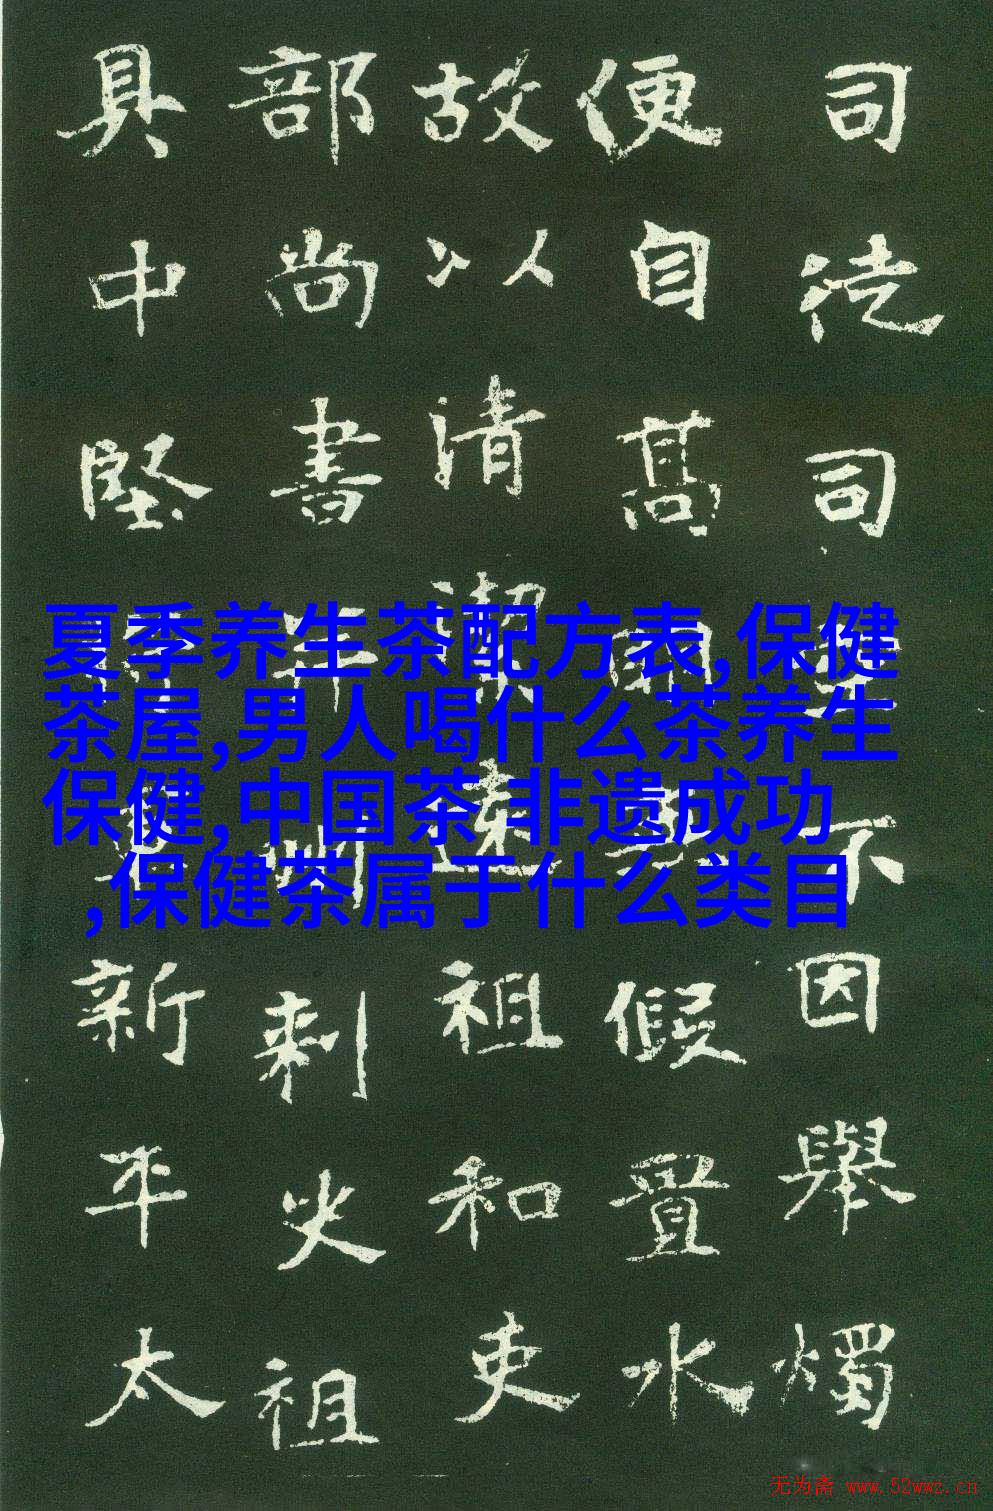 夏季养生茶配方表,保健
茶屋,男人喝什么茶养生
保健,中国茶 非遗成功
,保健茶属于什么类目
司徒司不因舉燭
便自髙假置水
故以清潔逹祖和吏
部尚書州刺史祖
具中堅將軍新平太
无为斋 www.52wwz.cn